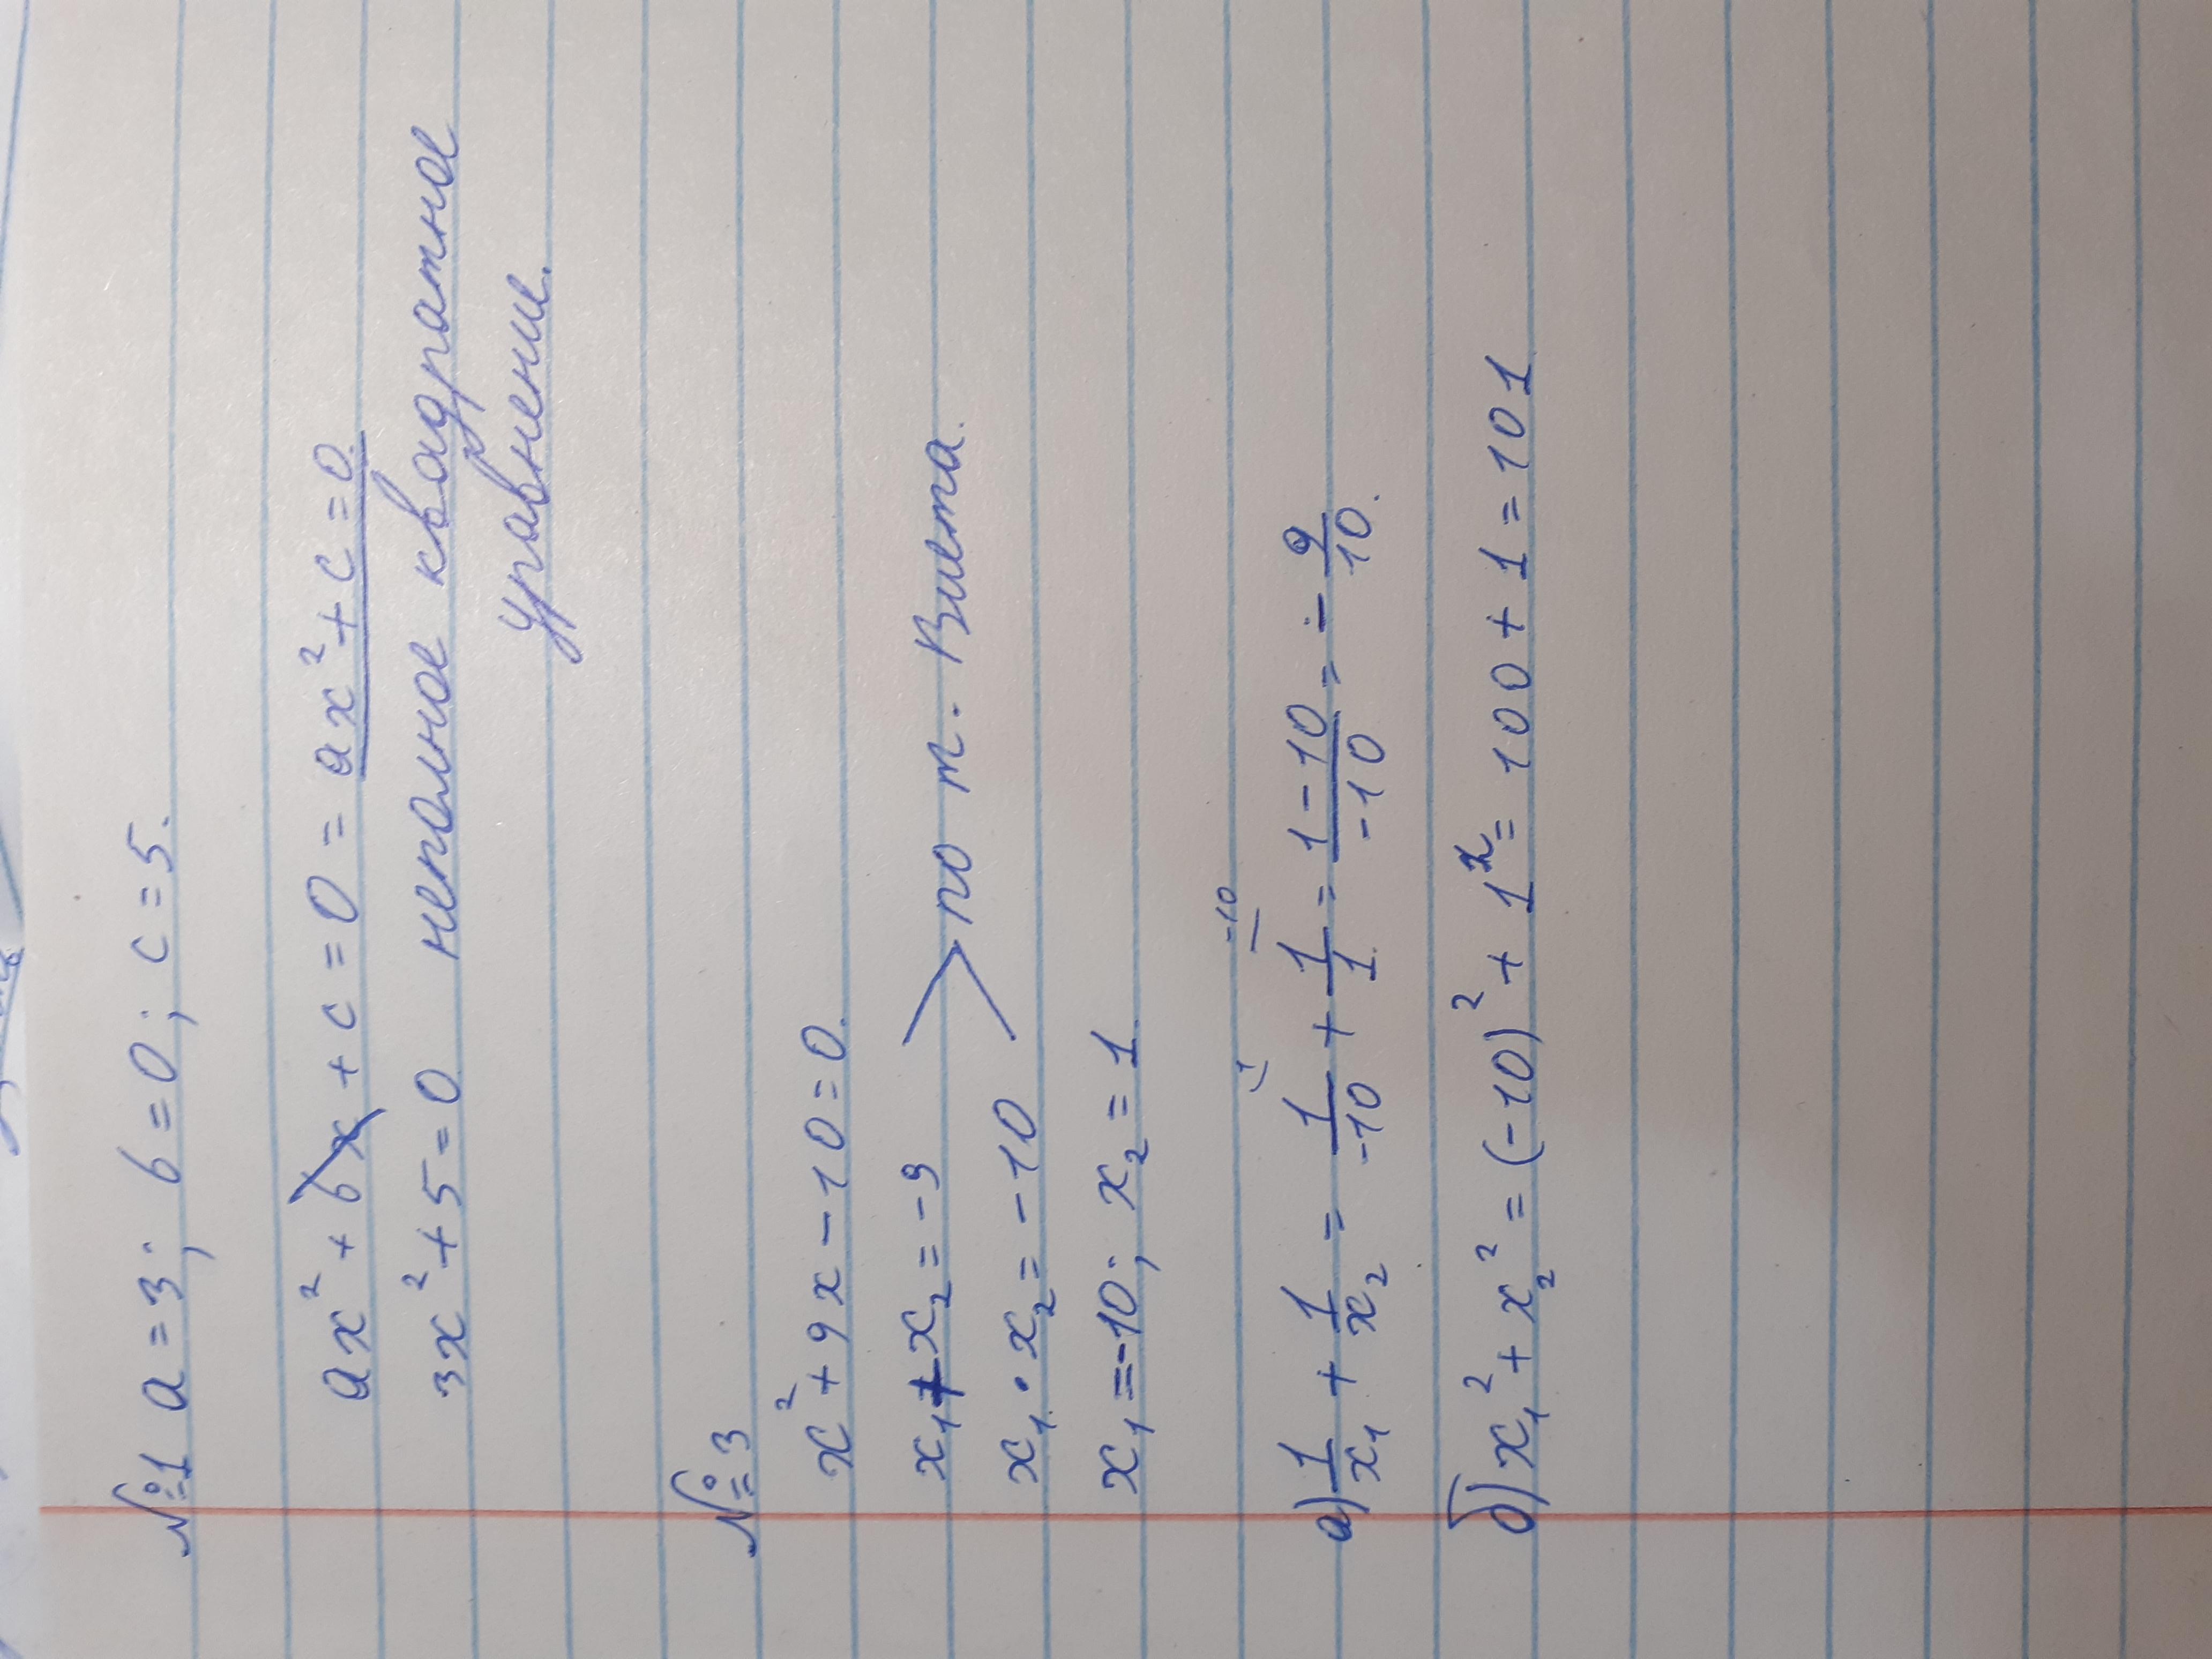 №1 a = 3; b = 0; c = 5.
ax² + bx + c = 0 = ax² + c = 0
3x² + 5 = 0 неполное квадратное
уравнение.
№3
x² + 9x − 10 = 0.
x₁ + x₂ = −9
по т. Виета.
x₁ · x₂ = −10
x₁ = −10; x₂ = 1
а) 1/x₁ + 1/x₂ = 1/−10 + 1/1 = 1 − 10/−10 = − 9/10.
б) x₁² + x₂² = (−10)² + 1² = 100 + 1 = 101